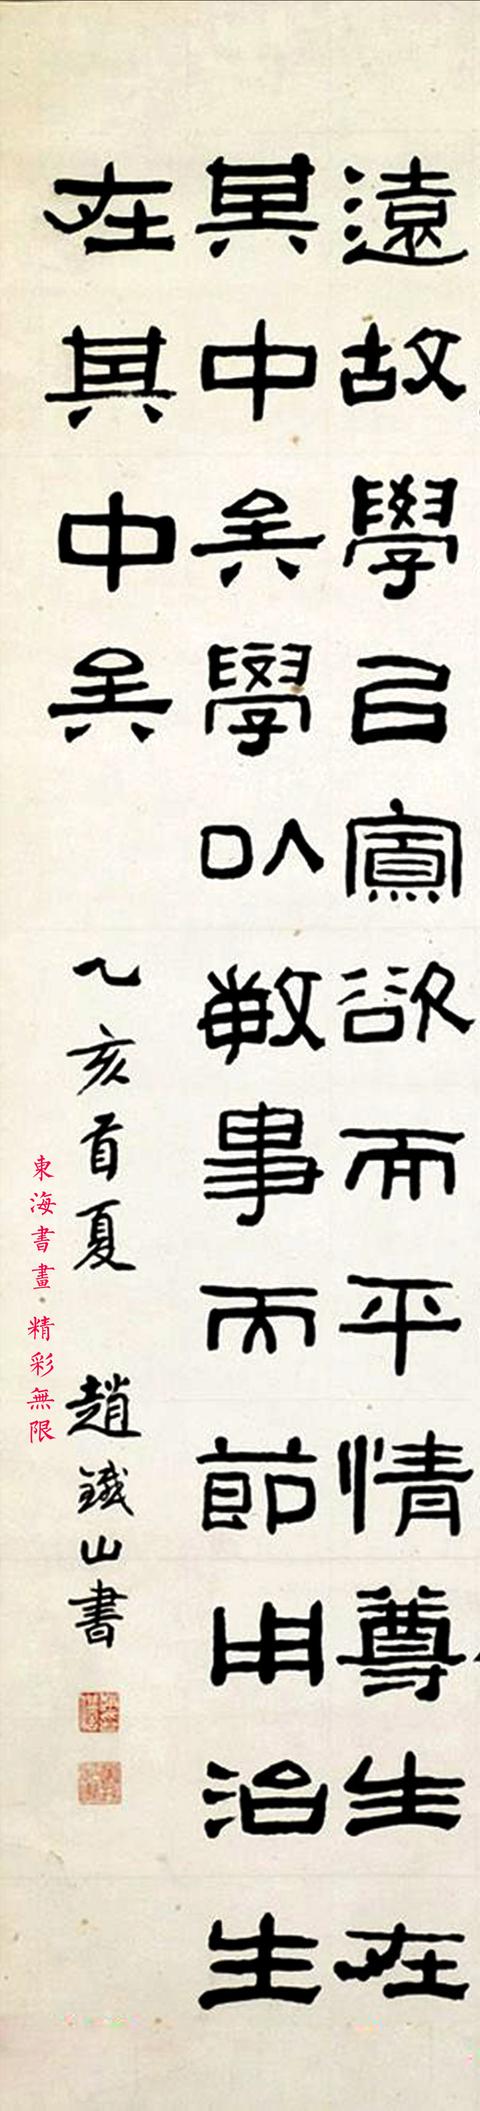 遠故學㠯寡欲而平情尊生在
其中矣學以敏事而節用治生
在其中矣
乙亥首夏 趙鐵山書
東海書畫·精彩無限